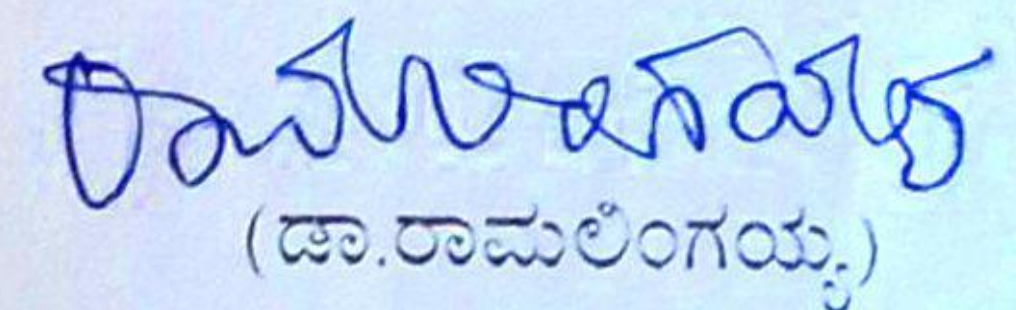 ರಾಮಲಿಂಗಯ್ಯ
(ಡಾ.ರಾಮಲಿಂಗಯ್ಯ)